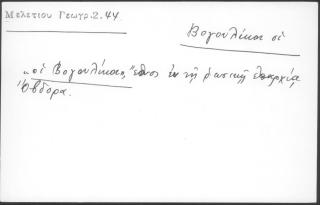 Μελετίου Γεωγρ. 2. 44.
Βογουλίκαι οἱ
"οἱ Βογουλίκαι, ἔθνος ἐν τῇ ῥασικῇ ἐπαρχίᾳ
Ὀβδόρα.